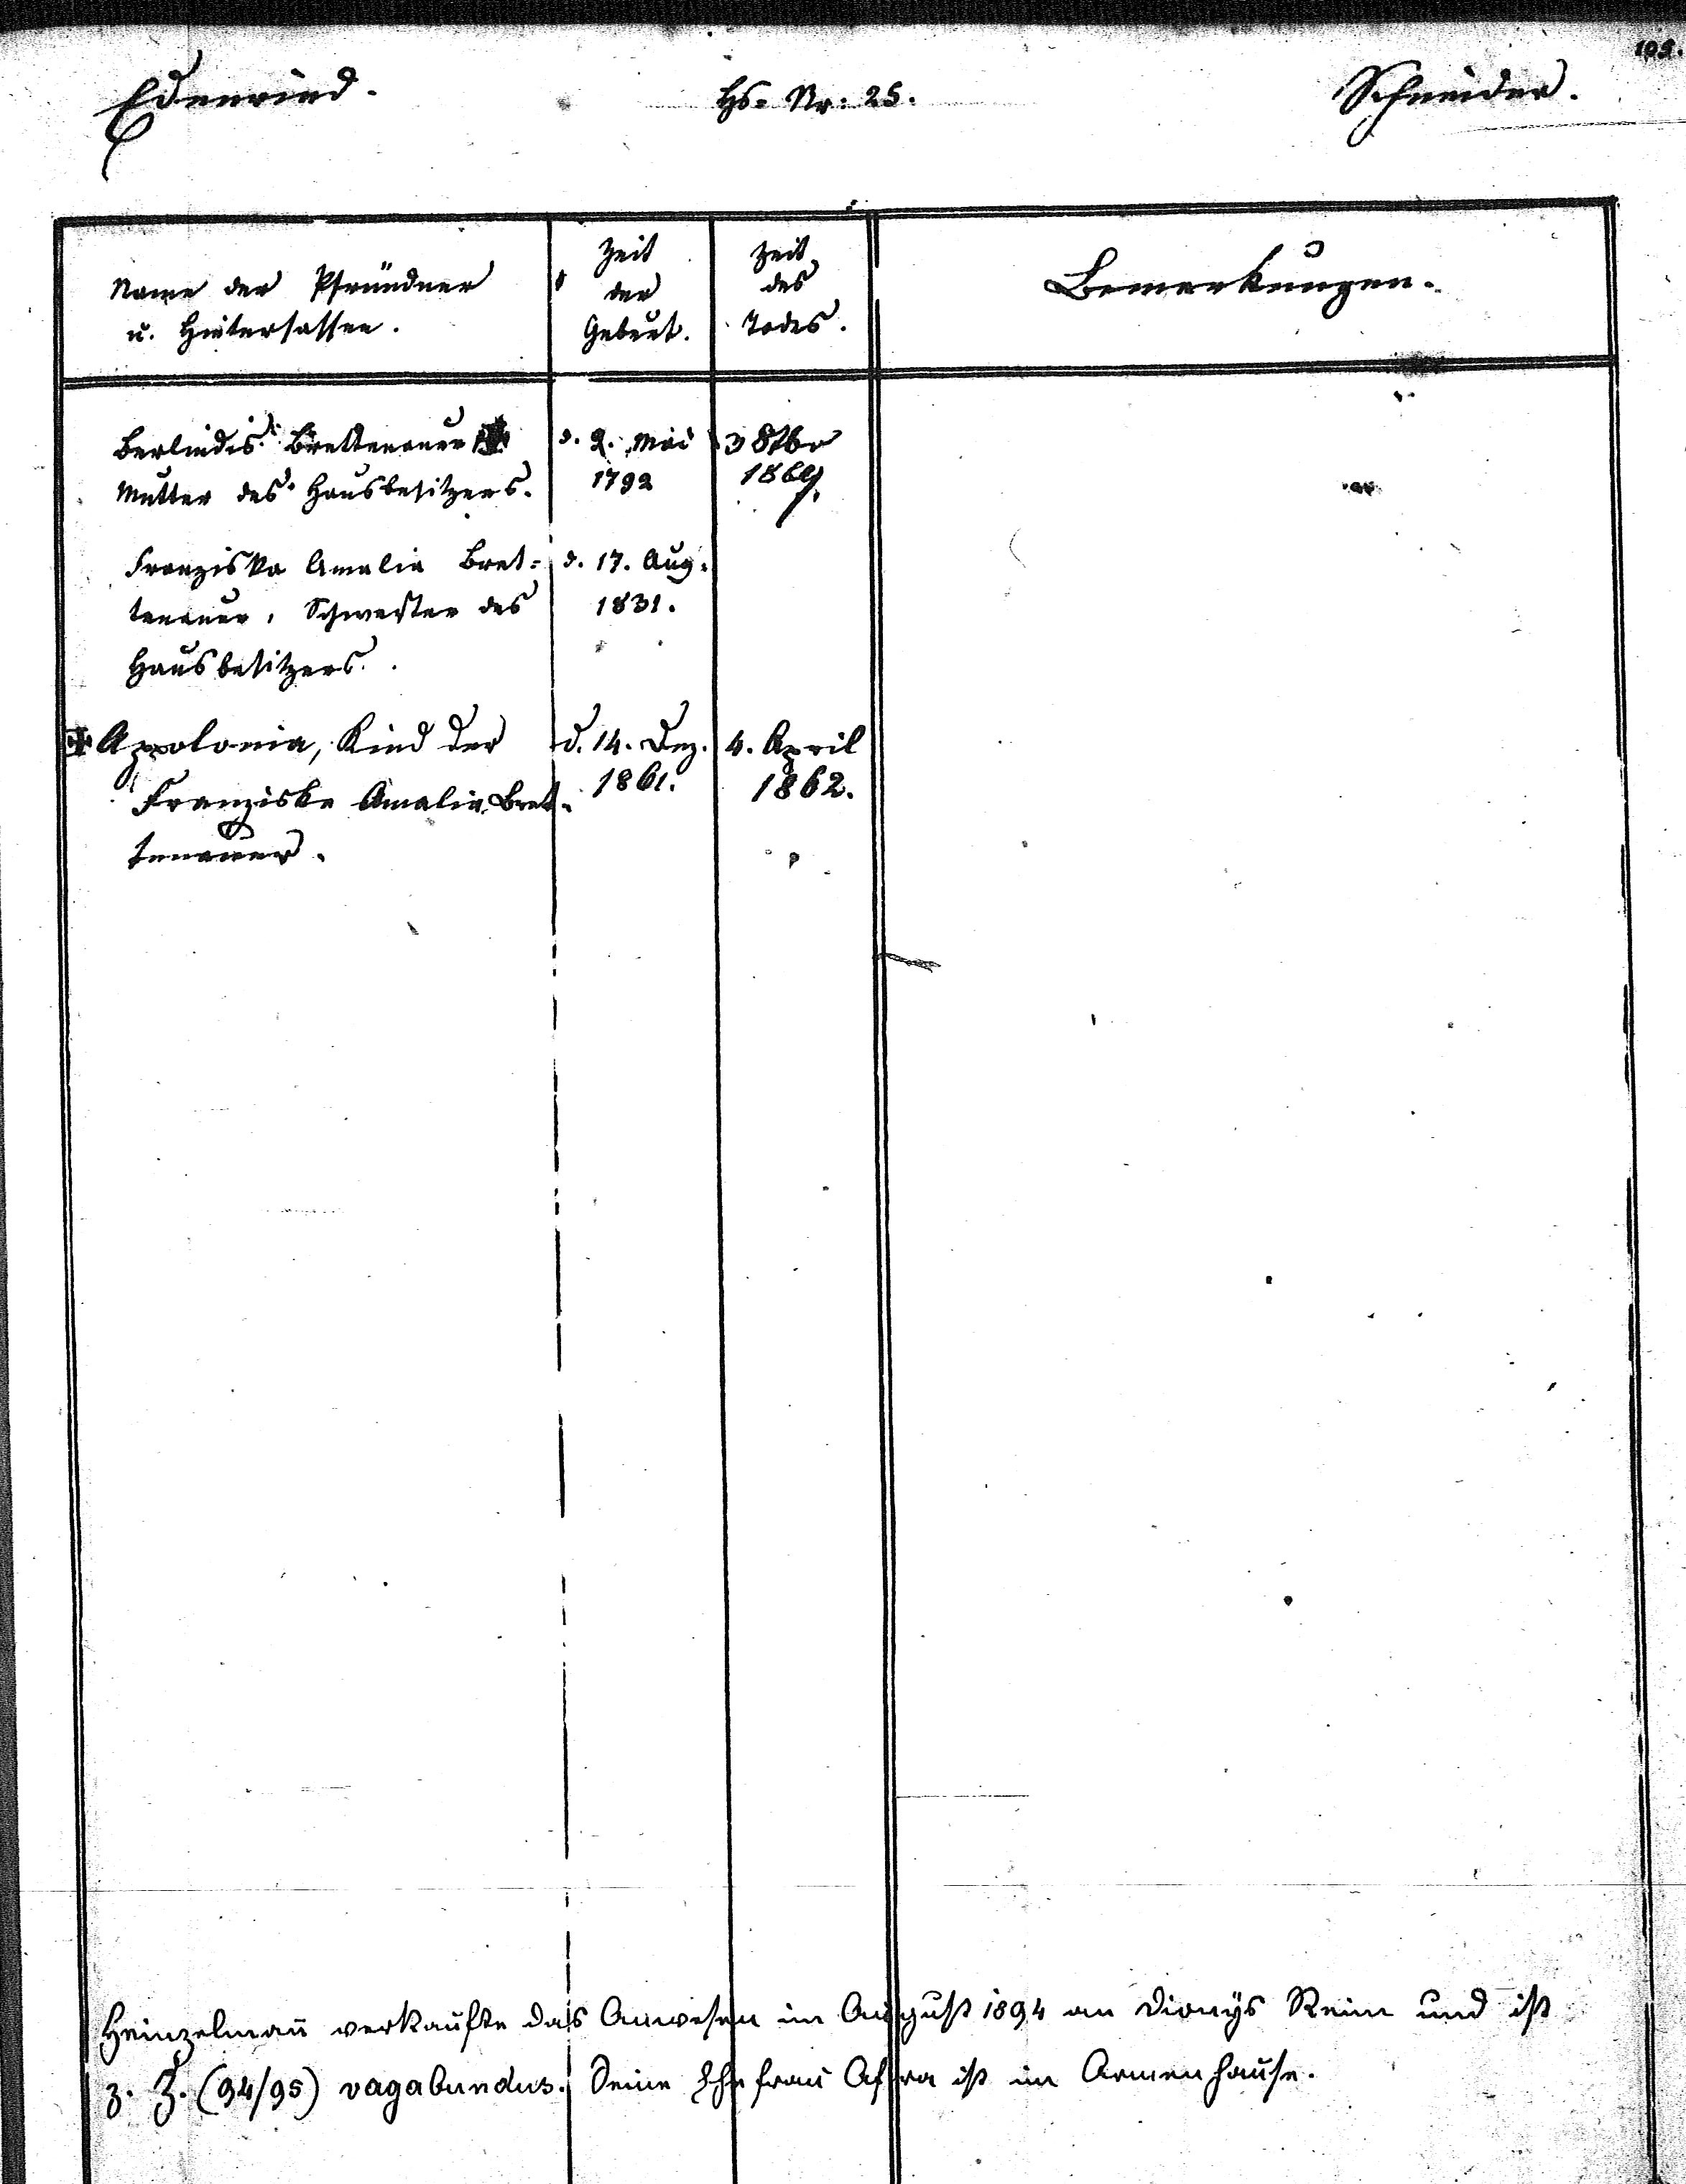 109.
Edenried.
Hs= Nr: 25.
Schneider.
Name der Pfründner
u. Hintersassen.
Zeit
der
Geburt.
Zeit
des
Todes.
Bemerkungen.
Berlindis Brettenauer
Mutter des Hausbesitzers.
d. 2. Mai
1792
3 8tbr
1869.
Franziska Amalia Bret=
tenauer, Schwester des
Hausbesitzers.
d. 17. Aug.
1831.
Appolonia, Kind der
Franziska Amalia Bret-
tenauer.
d. 14. Dez.
1861.
4. April
1862.
Heinzelmañ verkaufte das Anwesen im August 1894 an Dionÿs Reim und ist
z. Z. (94/95) vagabundus. Seine Ehefrau Afra ist im Armenhause.